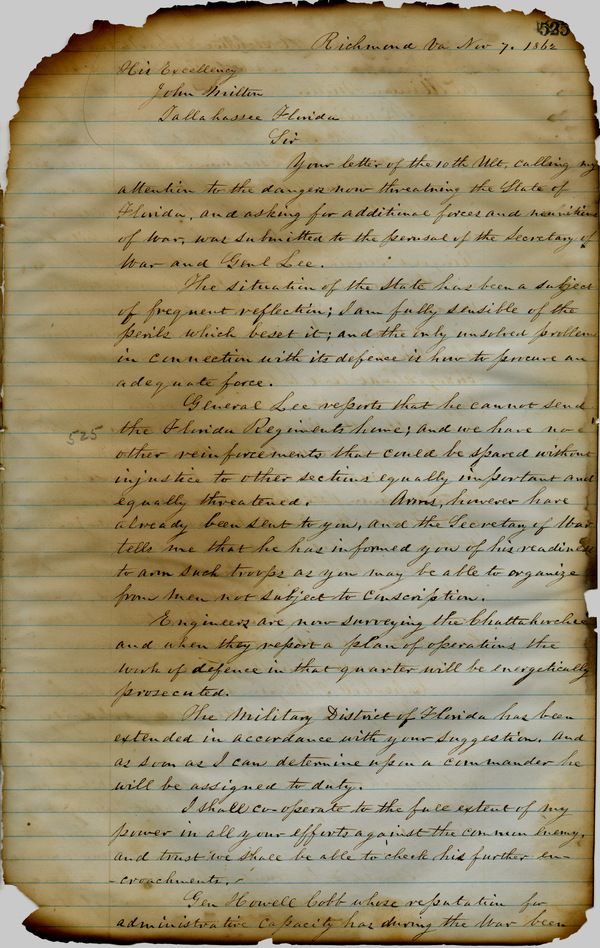 525
Richmond Va Nov 7. 1862
His Excellency
John Milton
Tallahassee Florida
Sir
Your letter of the 10th Ult, calling my
attention to the dangers now threatning the State of
Florida, and asking for additional forces and munitions
of War, was submitted to the perusal of the Secretary of
War and Genl Lee.
The situation of the State has been a subject
of frequent reflection; I am fully sensible of the
perils which beset it; and the only unsolved problem
in connection with its defence is how to procure an
adequate force.
General Lee reports that he cannot send
the Florida Regiments home; and we have no
525
other reinforcements that could be spared without
injustice to other sections equally important and
equally threatened. Arms, however have
already been sent to you, and the Secretary of War
tells me that he has informed you of his readiness
to arm such troops as you may be able to organize
from men not subject to conscription.
Engineers are now surveying the Chattahoochee
and when they report a plan of operations the
work of defence in that quarter will be energetically
prosecuted.
The Military District of Florida has been
extended in accordance with your suggestion, and
as soon as I can determine upon a commander he
will be assigned to duty.
I shall co-operate to the full extent of my
power in all your efforts against the common enemy,
and trust we shall be able to check his further en-
-croachments.
Gen Howell Cobb whose reputation for
administrative capacity has during the War been